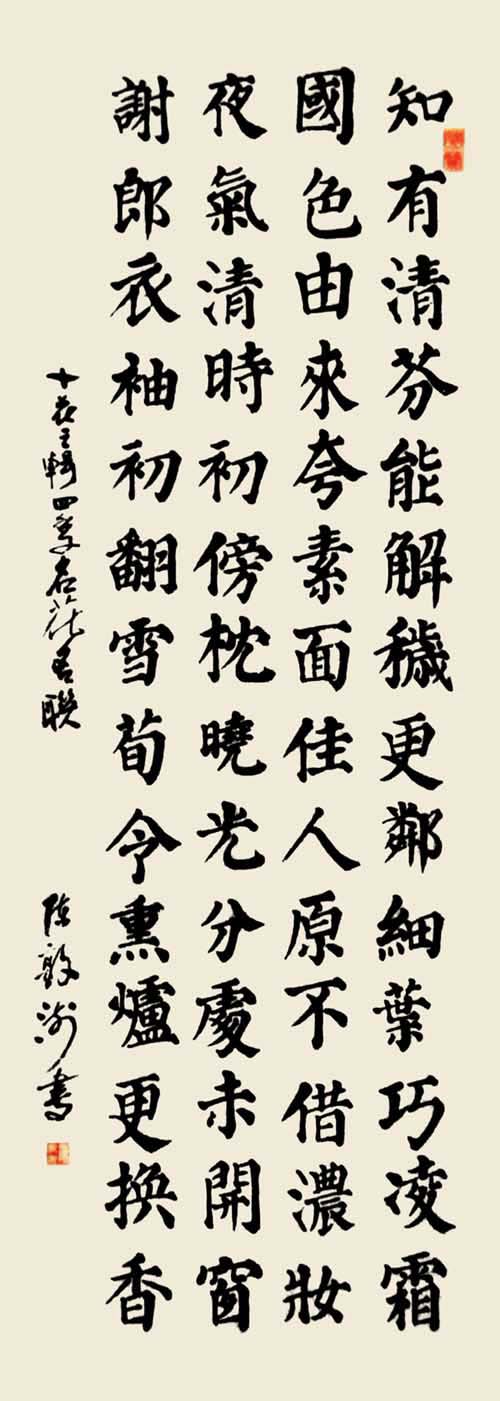 知有清芬能解穢更鄰細葉巧凌霜
國色由來夸素面佳人原不借濃妝
夜氣清時初傍枕曉光分處未開窗
謝郎衣袖初翻雪荀令熏爐更換香
十花王輯四季名花名聯
陈書